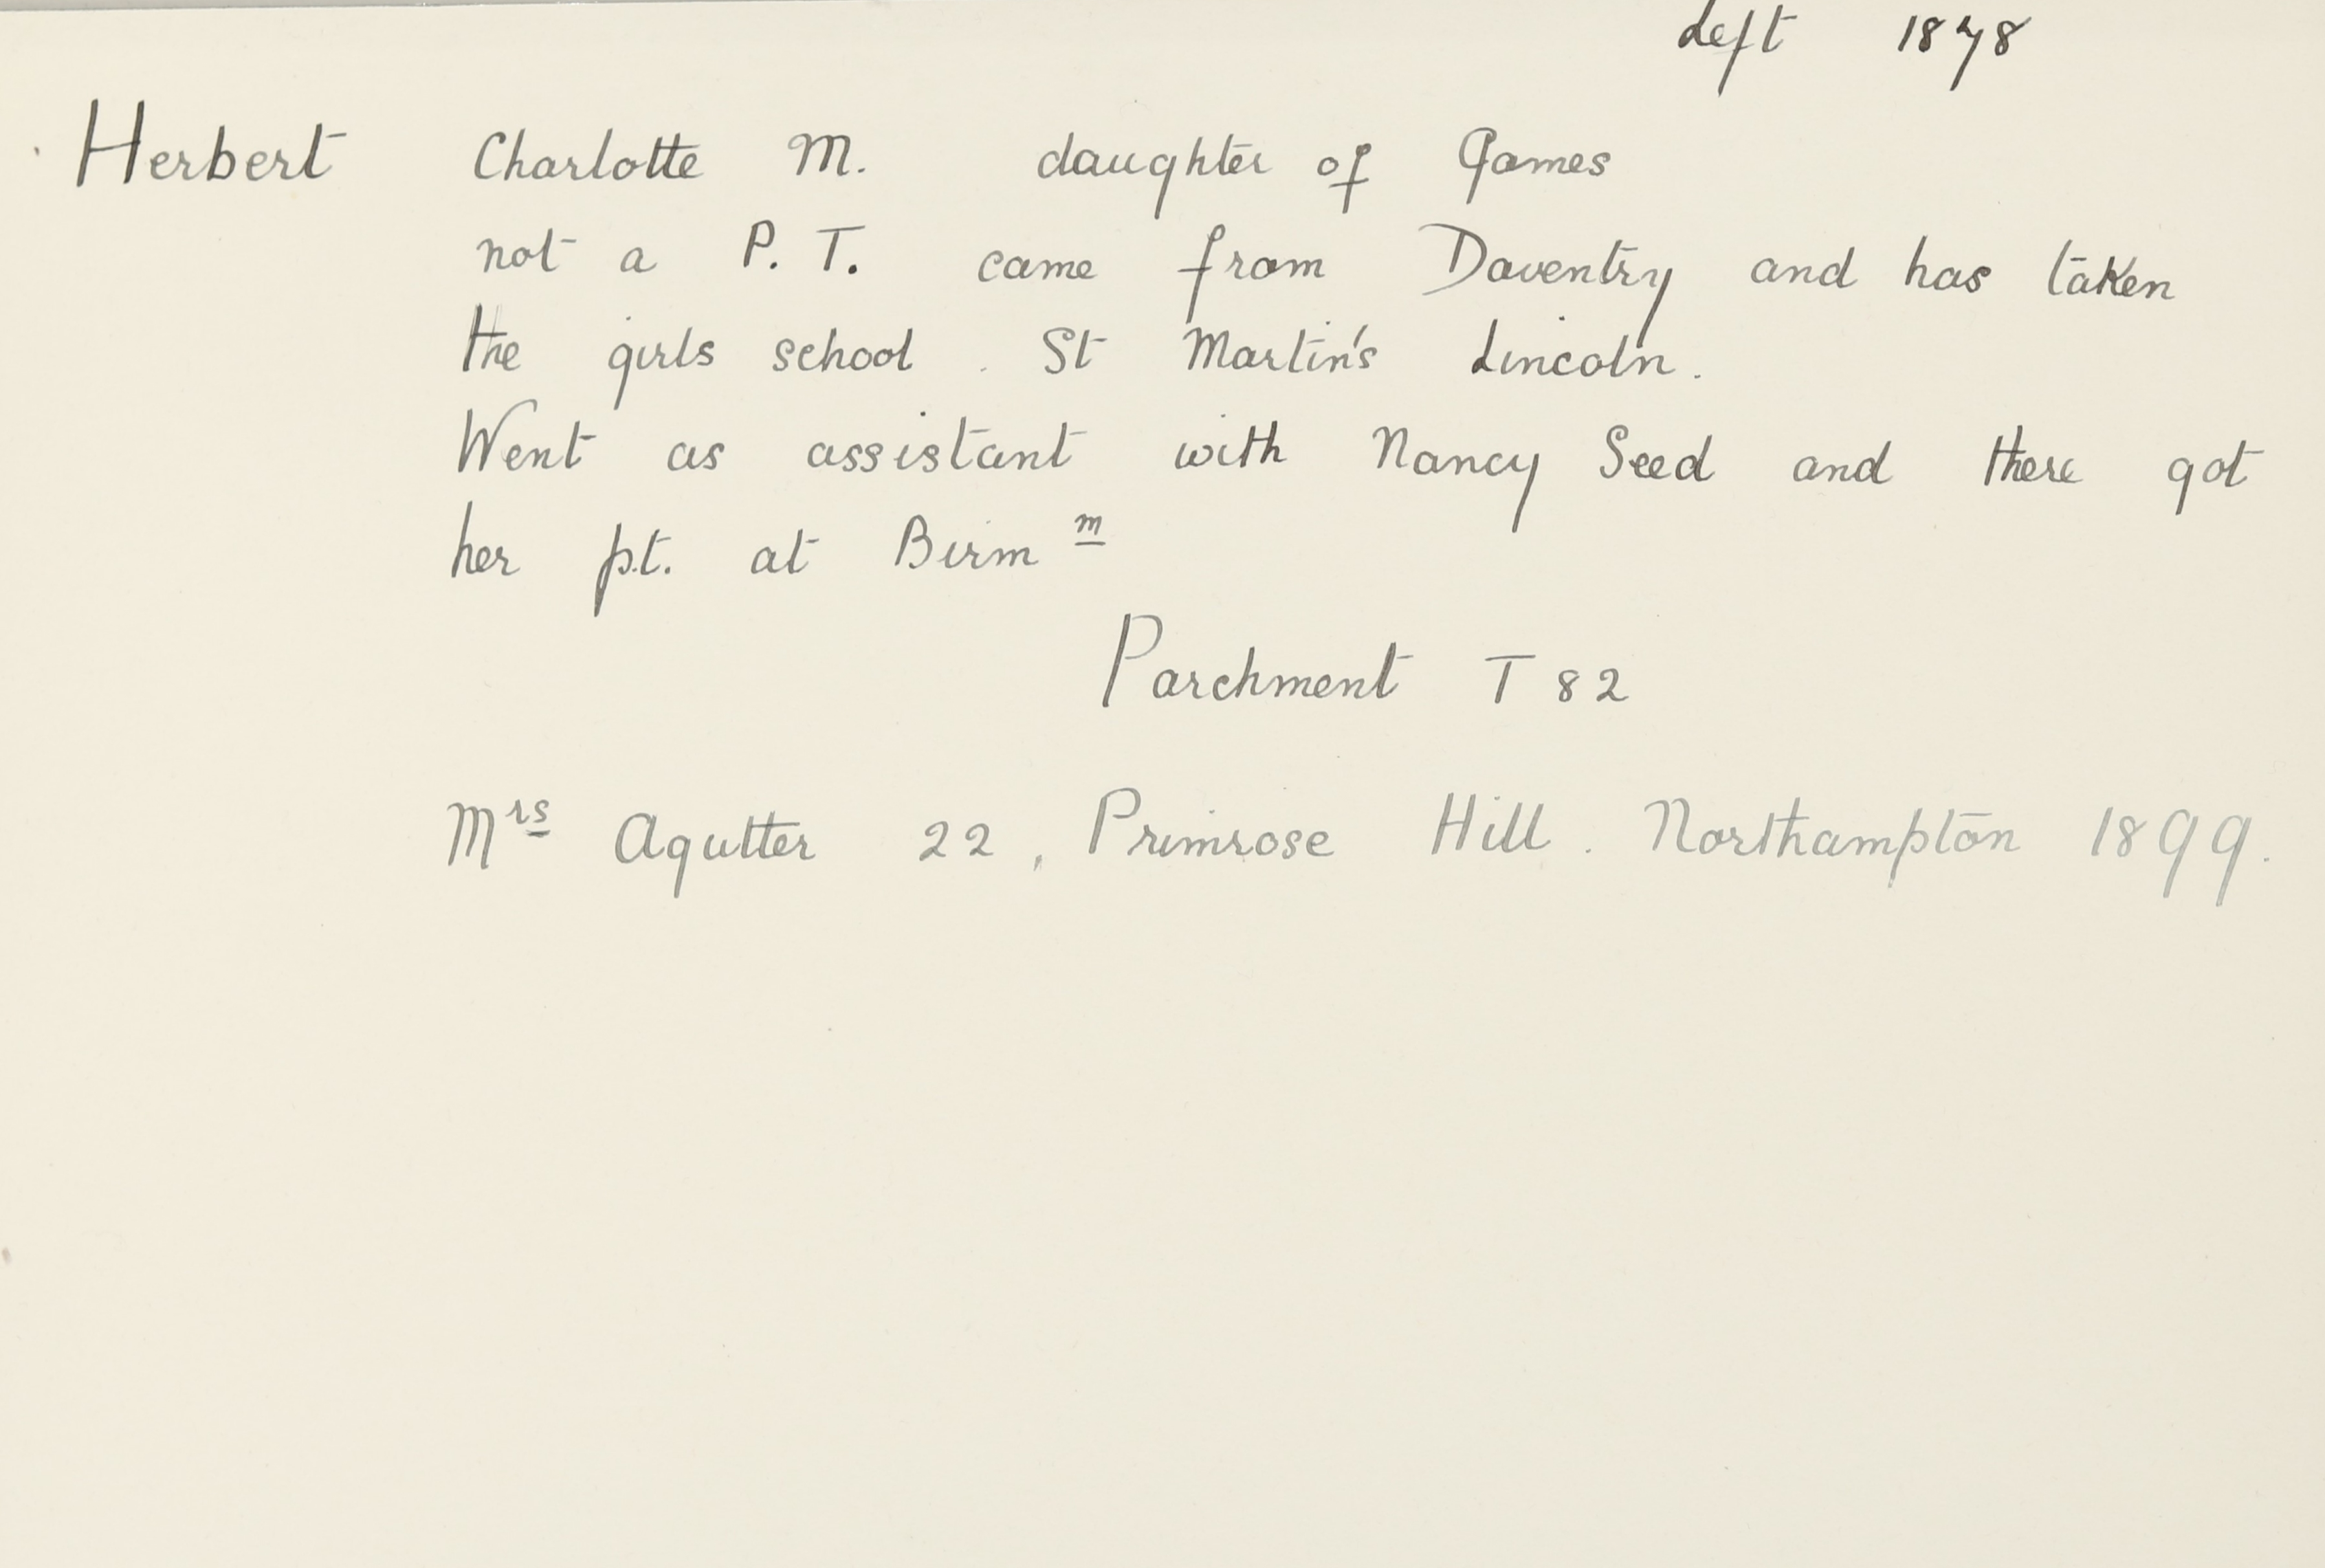 Left 1878
Herbert Charlotte M. daughter of James
not a P. T. came from Daventry and has taken
the girls school. St Martin's Lincoln.
Went as assistant with Nancy Seed and there got
her p.t. at Birm m
Parchment T 82
Mrs Agutter 22, Primrose Hill. Northampton 1899.